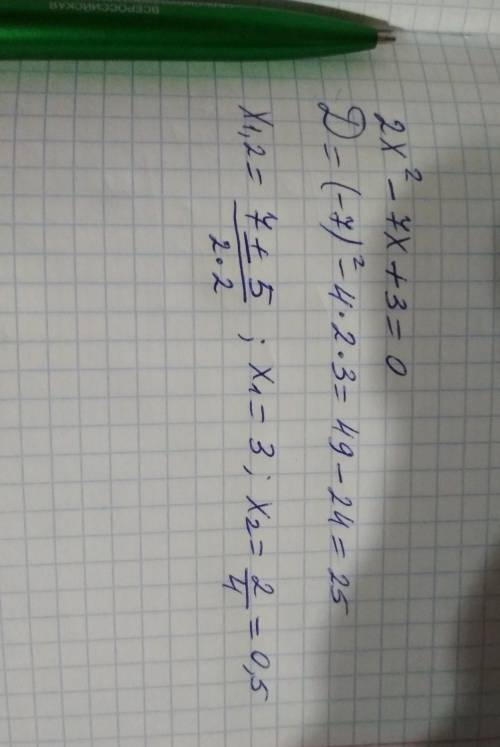 ВСЕРОССИЙСКАЯ
2x² - 7x + 3 = 0
D = (-7)² - 4·2·3 = 49 - 24 = 25
x₁,₂ = (7 ± 5)/(2·2) ; x₁ = 3 ; x₂ = 2/4 = 0,5